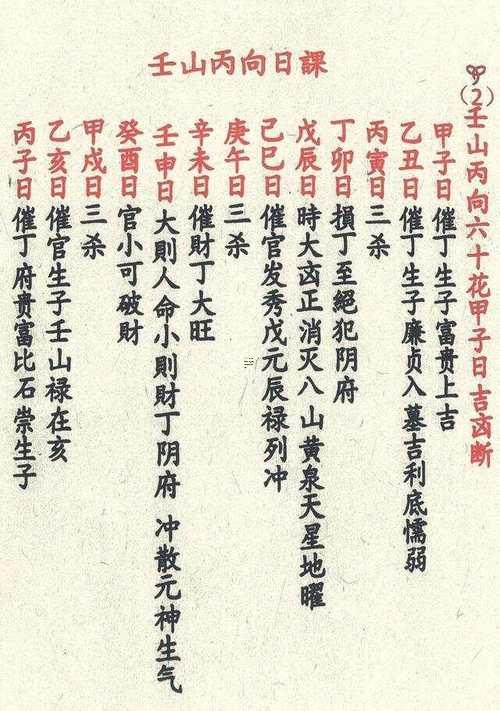 壬山丙向日課
(2)壬山丙向六十花甲子日吉凶断
甲子日催丁生子富贵上吉
乙丑日催丁生子廉贞入墓吉利底懦弱
丙寅日三杀
丁卯日損丁至絕犯阴府
戊辰日時大凶正消灭八山黄泉天星地曜
己巳日催官发秀戊元辰禄列冲
庚午日三杀
辛未日催财丁大旺
壬申日大則人命小則財丁阴府 冲散元神生气
癸酉日官小可破財
甲戌日三杀
乙亥日催官生子壬山禄在亥
丙子日催丁府贵富比石崇生子